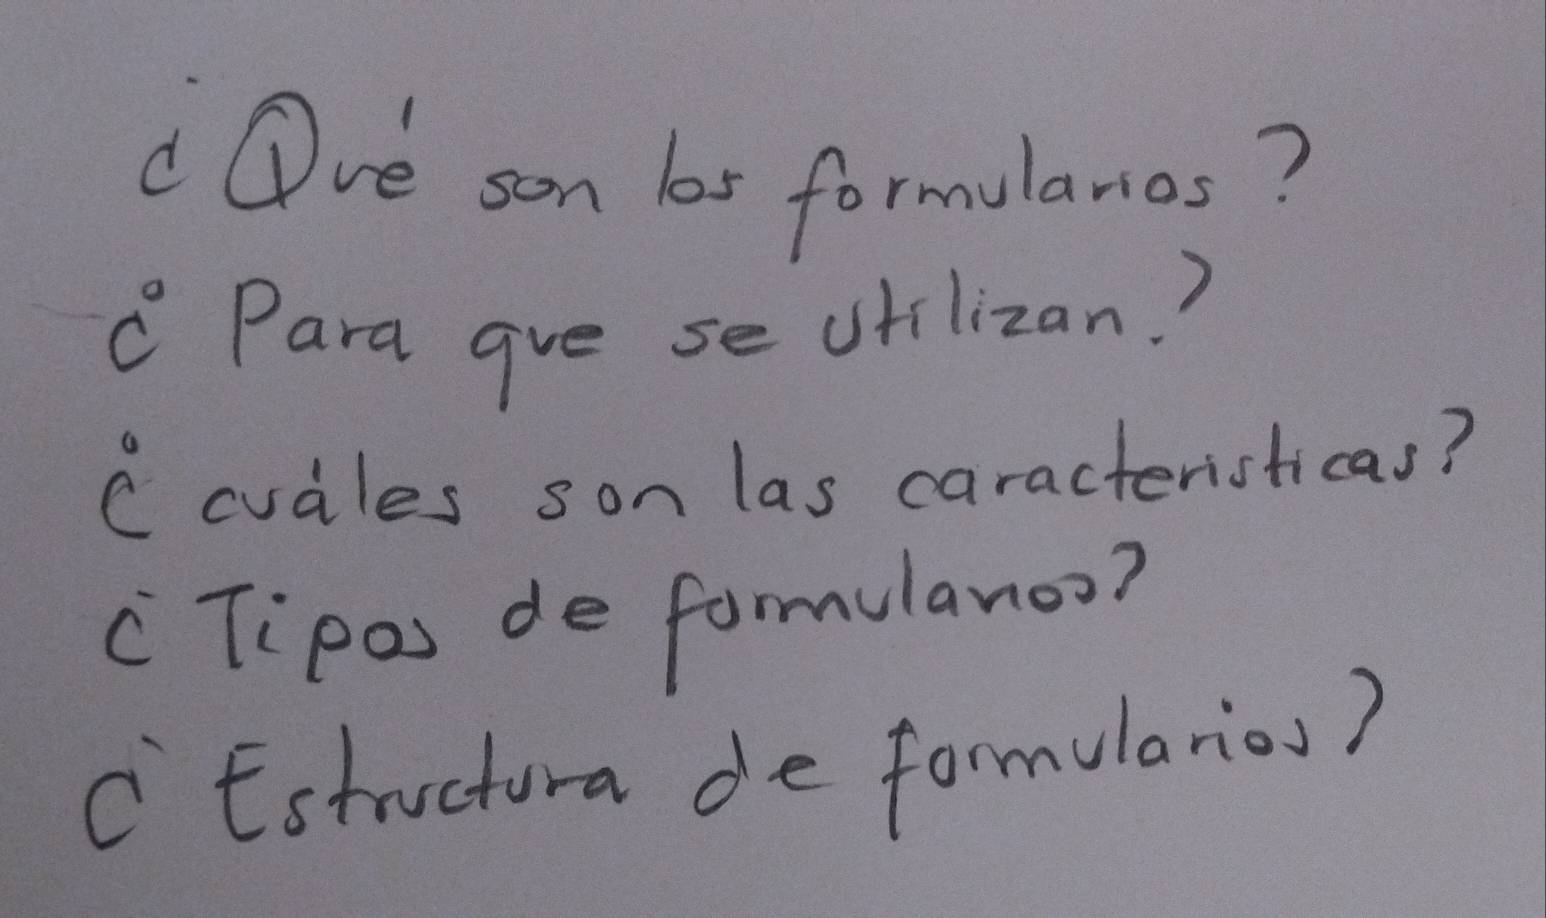 ¿Qué son los formularios?
¿Para que se utilizan?
¿cuáles son las caracteristicas?
¿Tipos de formularios?
¿Estructura de formularios?